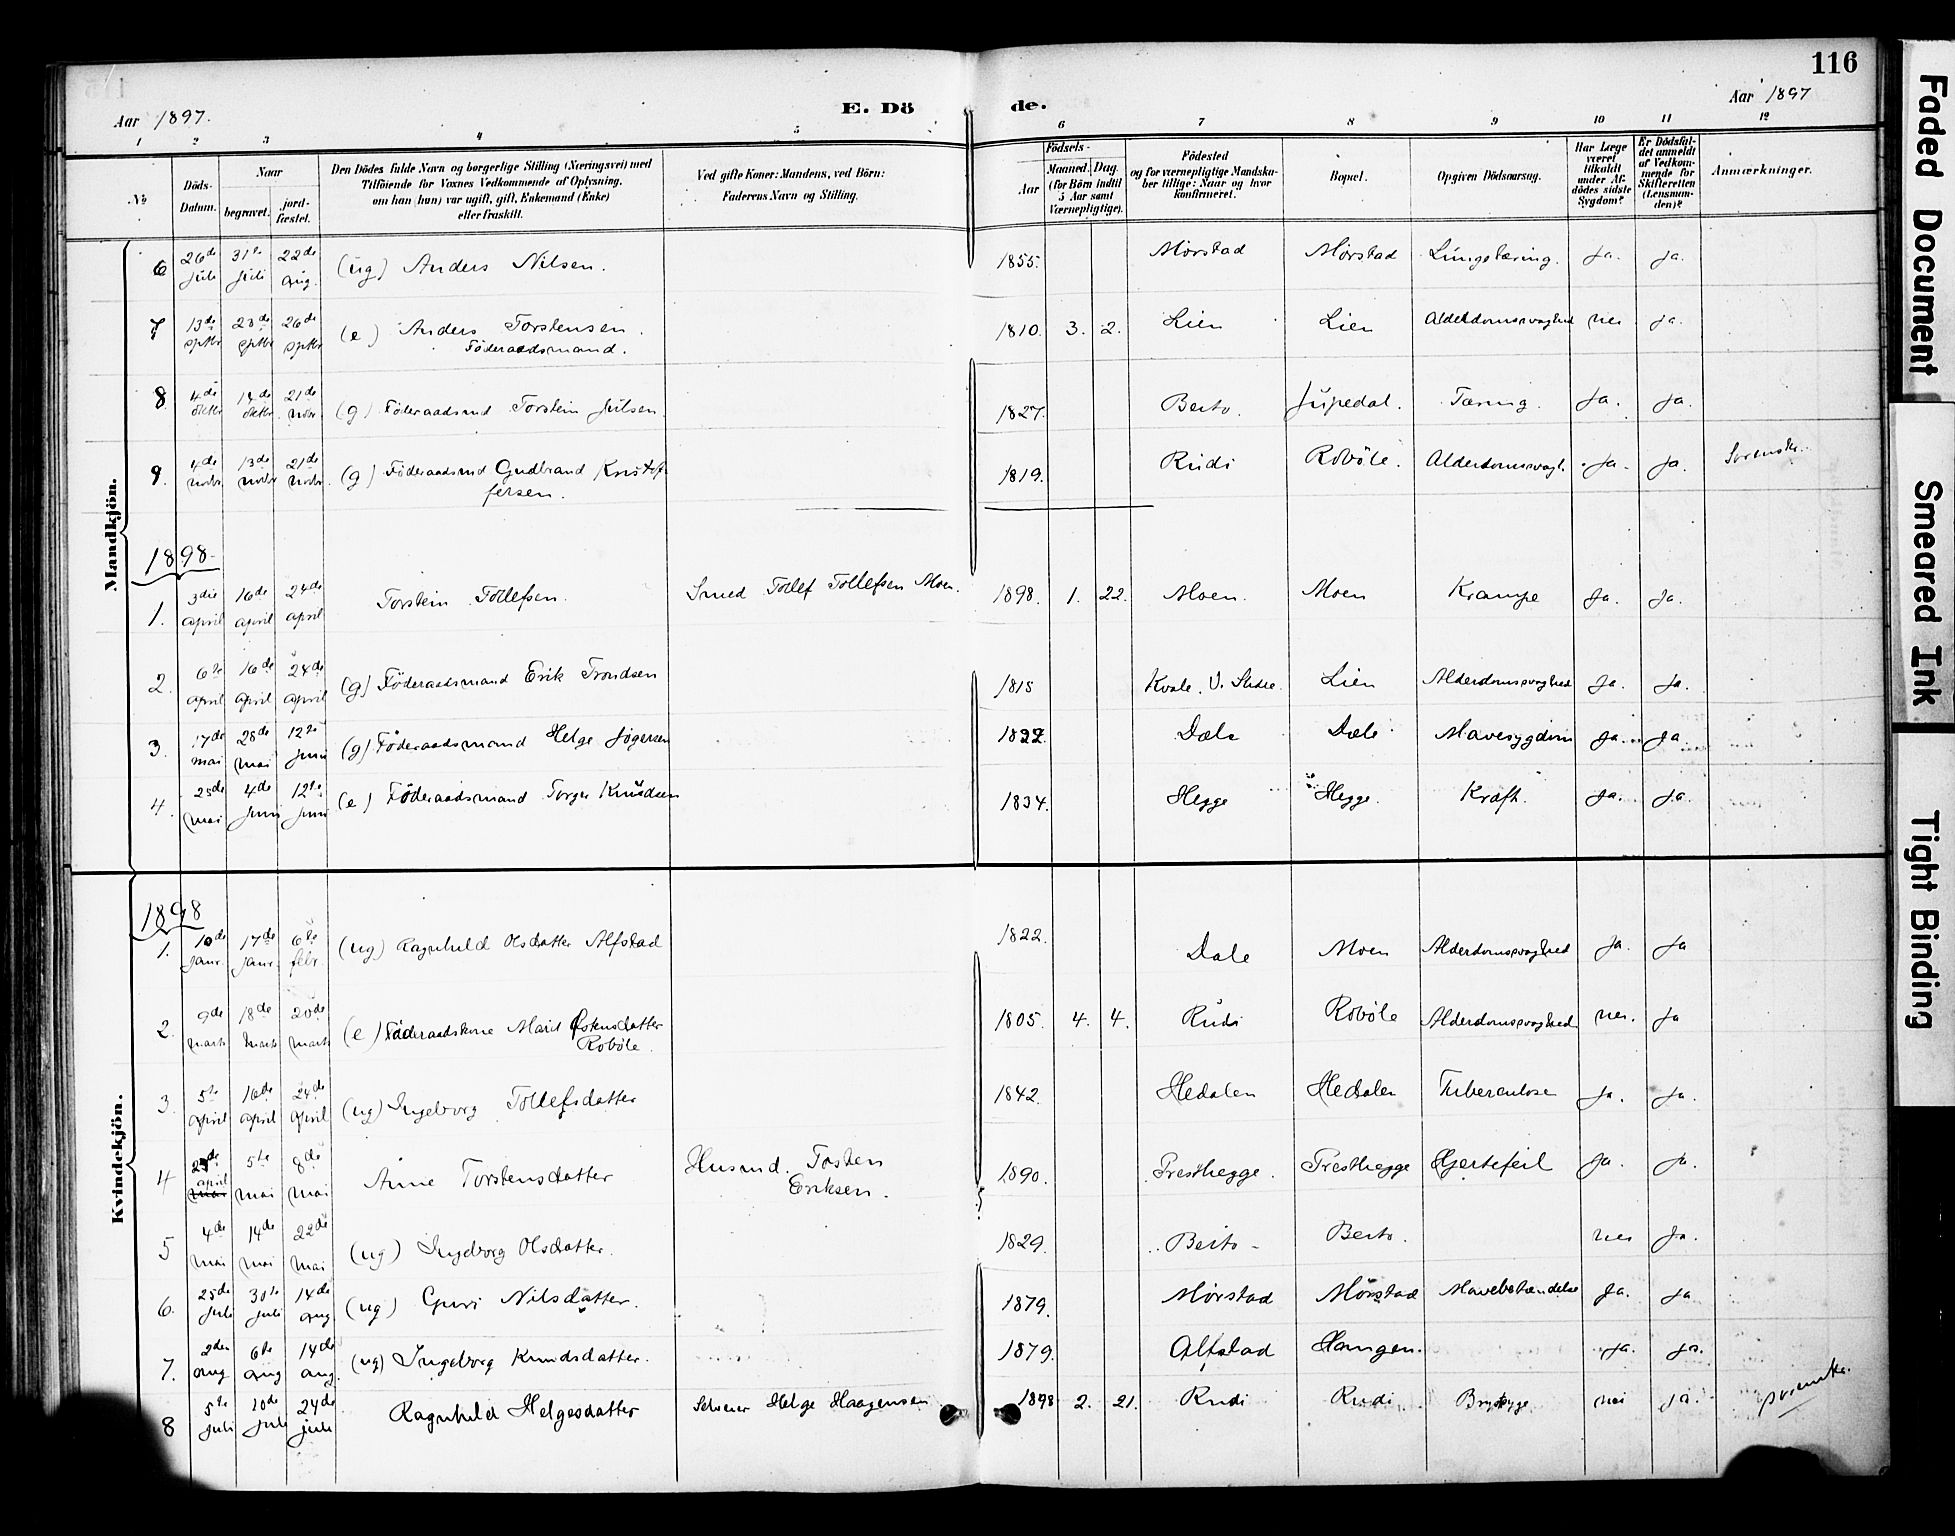 116
Aar 1897.
E. Döde.
Aar 1897
1 2 3 4 5 6 7 8 9 10 11 12
No.
Döds-Datum.
Naar
begravet.
jord-fæstet.
Den Dödes fulde Navn og borgerlige Stilling (Næringsvei) med
Tilföiende for Voxnes Vedkommende af Oplysning,
om han (hun) var ugift, gift, Enkemand (Enke)
eller fraskilt.
Ved gifte Koner: Mandens, ved Börn:
Faderens Navn og Stilling.
Födsels-
Aar
Maaned. Dag.
(for Börn indtil
5 Aar samt
Værnepligtige).
Födested
og for værnepligtige Mandska-
ber tillige: Naar og hvor
konfirmeret.
Bopæl.
Opgiven Dödsaarsag.
Har Læge
været
tilkaldt
under Af-
dödes sidste
Sygdom?
Er Dödsfal-
det anmeldt
af Vedkom-
mende for
Skifteretten
(Lensman-
den)?
Anmærkninger.
Mandkjön.
6 26de Juli 31te Juli 22de Aug. (ug) Anders Nilsen. 1855. Mörstad Mörstad Lungetæring. Ja. Ja.
7 13de Septbr 23de Septbr 26de Septbr (e) Anders Torstensen. Föderaadsmand. 1810. 3. 2. Lien Lien Alderdomssvaghed nei Ja.
8 4de Oktbr 14de Oktbr 21de Novbr (g) Föderaadsmd Torstein Julsen. 1827. Beito. Jupedal. Tæring. Ja. Ja.
9. 4de Novbr 13de Novbr 21de Novbr. (g) Föderaadsmd Gudbrand Kristoffersen. 1819. Rudi Roböle. Alderdomssvagh. Ja. Ja.
1898.
1. 3die april 16de april 24de april Torstein Tollefsen. Smed Tollef Tollefsen Moen. 1898. 1. 22. Moen. Moen Krampe Ja. Ja.
2. 6te april 16de april 24de april (g) Föderaadsmand Erik Trondsen 1815 Kvale, V. Slidre. Lien Alderdomssvaghed Ja. Ja.
3. 17de mai 28de mai 12te Juni (g) Föderaadsmand Helge Jögersen Dale Dale Mavesygdom Ja. Ja
4. 25de mai 4de Juni 12te Juni (e) Föderaadsmand Torger Knudsen 1834. Hegge Hegge. Kræft. Ja. Ja.
Kvindekjön.
1898
1. 10de Janr. 17de Janr. 6te febr. (ug) Ragnhild Olsdatter Alfstad 1822. Dale Moen Alderdomssvaghed Ja. Ja
2. 9de marts 18de marts 20de marts (e) Föderaadskone Marit Östensdatter Roböle. 1805. 4. 4. Rudi Roböle Alderdomssvaghed nei. Ja
3. 5te april 16de april 24de april (ug) Ingeborg Tollefsdatter 1842. Hedalen Hedalen Tuberculose Ja. Ja.
4 april mai 5te mai 8de mai Anne Torstensdatter Husmd. Torsten Eriksen. 1890. Presthegge. Presthegge Hjertefeil Ja. Ja.
5 4de mai 14de mai 22de mai (ug) Ingeborg Olsdatter. 1829. Beito Beito. nei Ja.
6. 25de Juli 30te Juli 14de aug (ug) Guri Nilsdatter. 1879. Mörstad Mörstad Mavebetændelse Ja. Ja
7. 2den aug 6te aug 14de aug. (ug) Ingeborg Knudsdatter. 1879. Alfstad Haugen. Ja. Ja.
8 5te Juli 10de Juli 24de Juli Ragnhild Helgesdatter Selveier Helge Haagensen 1898 2. 21. Rudi Rudi. Brystsyge nei Ja.
Faded Document
Smeared Ink
Tight Binding